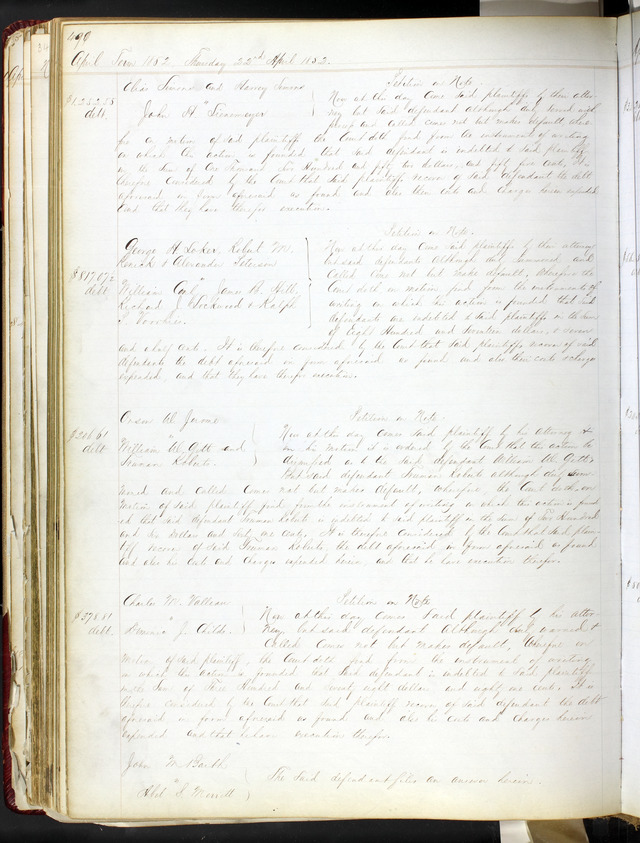 490
April Term 1852, Thursday 22nd April 1852.
Petition on Note.
and Harvey
$1252.55
debt.
John H
Now at this day Come Said plaintiffs by their attor-
ney but said defendant although duly served with
process and called comes not but makes default, where
fore on motion of said plaintiffs the Court doth find from the instrument of writing
on which the action is founded that said defendant is indebted to said plaintiffs
in the Sum of One thousand two Hundred and fifty two dollars, and fifty five cents, It is
therefore Considered by the Court that Said plaintiffs recover of Said defendant the debt
aforesaid in form aforesaid so found and also their costs and charges herein expended
and that they have therefore execution.
Petition on Note.
George H. Loker, Robert
& Alexander Peterson
$817.07½
debt
William Carl, James B. Hill,
Richard J. Lockwood & Ralph
Now at this day Come Said plaintiffs by their attorney
but said defendants Although duly summoned and
Called Come not but make default, Wherefore the
Court doth on motion find from the instrument of
writing on which the action is founded that said
defendants are indebted to Said plaintiffs in the sum
of Eight Hundred and Seventeen dollars, & seven
and a half cents. It is therefore considered by the Court that Said plaintiffs recover of said
defendants the debt aforesaid in form aforesaid so found and also their costs & charges
expended, and that they have therefore execution.
Petition on Note.
Jerome
$206.61
debt
William W. Gitt and
Truman Roberts.
Now at this day Comes Said plaintiff by his attorney &
on his motion it is ordered by the Court that this action be
dismissed as to the Said defendant William W. Gitt
But Said defendant Truman Roberts although duly sum-
moned and Called Comes not but makes default, wherefore, the Court doth, on
Motion of Said plaintiff find from the instrument of writing on which the action is found
ed that said defendant Truman Roberts is indebted to Said plaintiff in the sum of Two Hundred
and six dollars and sixty one cents. It is therefore Considered by the Court that Said plain-
tiff recover of Said Truman Roberts, the debt aforesaid in form aforesaid so found
and also his Costs and Charges expended herein, and that he have execution therefor.
Charles M. Valleau
Petition on Note
$378.81
debt.
J. Childs.
Now at this day Comes Said plaintiff by his attor-
ney, but said defendant Although duly served &
Called Comes not but makes default, Wherefore on
Motion of Said plaintiff, the Court doth find from the instrument of writing
on which the action is founded that Said defendant is indebted to Said plaintiff
in the Sum of Three Hundred and Seventy eight dollars and eighty one cents. It is
therefore considered by the Court that Said plaintiff recover of Said defendant the debt
aforesaid in form aforesaid so found and also his Costs and Charges herein
expended and that he have execution therefor.
John M. Barth
The Said defendant files an answer herein.
Abel S. Merrell